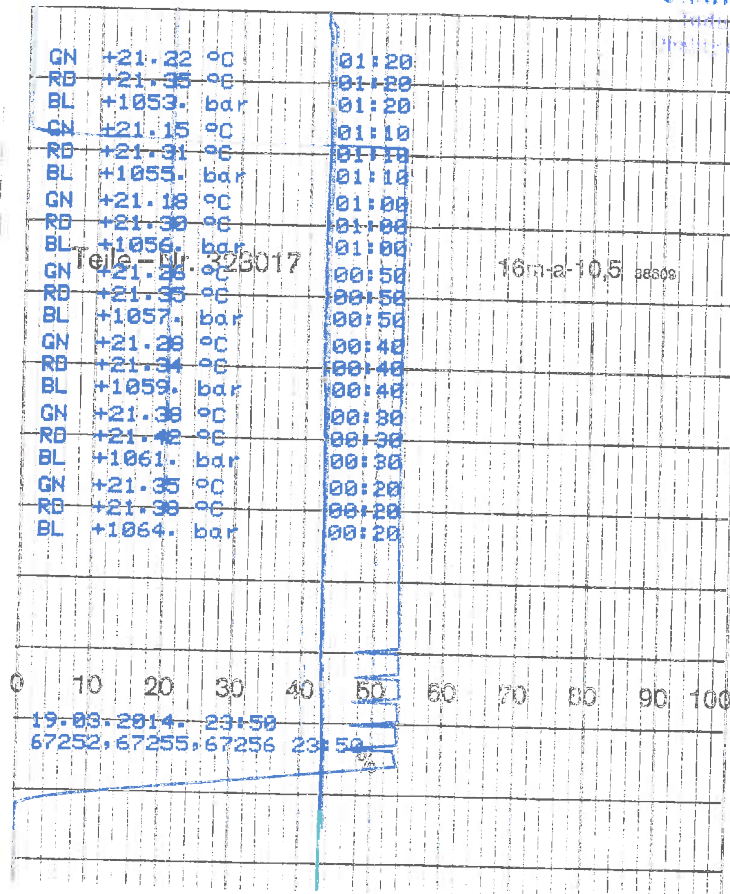 GN +21.22 °C 01:20
RD +21.35 °C 01:20
BL +1053. bar 01:20
GN +21.15 °C 01:10
RD +21.31 °C 01:10
BL +1055. bar 01:10
GN +21.18 °C 01:00
RD +21.30 °C 01:00
BL +1056. bar 01:00
Teile-Nr. 323017 16m-a-10,5
GN °C 00:50
RD +21.35 °C 00:50
BL +1057. bar 00:50
GN +21.28 °C 00:40
RD +21.34 °C 00:40
BL +1059. bar 00:40
GN +21.38 °C 00:30
RD +21.42 °C 00:30
BL +1061. bar 00:30
GN +21.35 °C 00:20
RD +21.38 °C 00:20
BL +1064. bar 00:20
0 10 20 30 40 50 60 70 80 90 100
19.03.2014. 23:50
67252,67255,67256 23:50
%